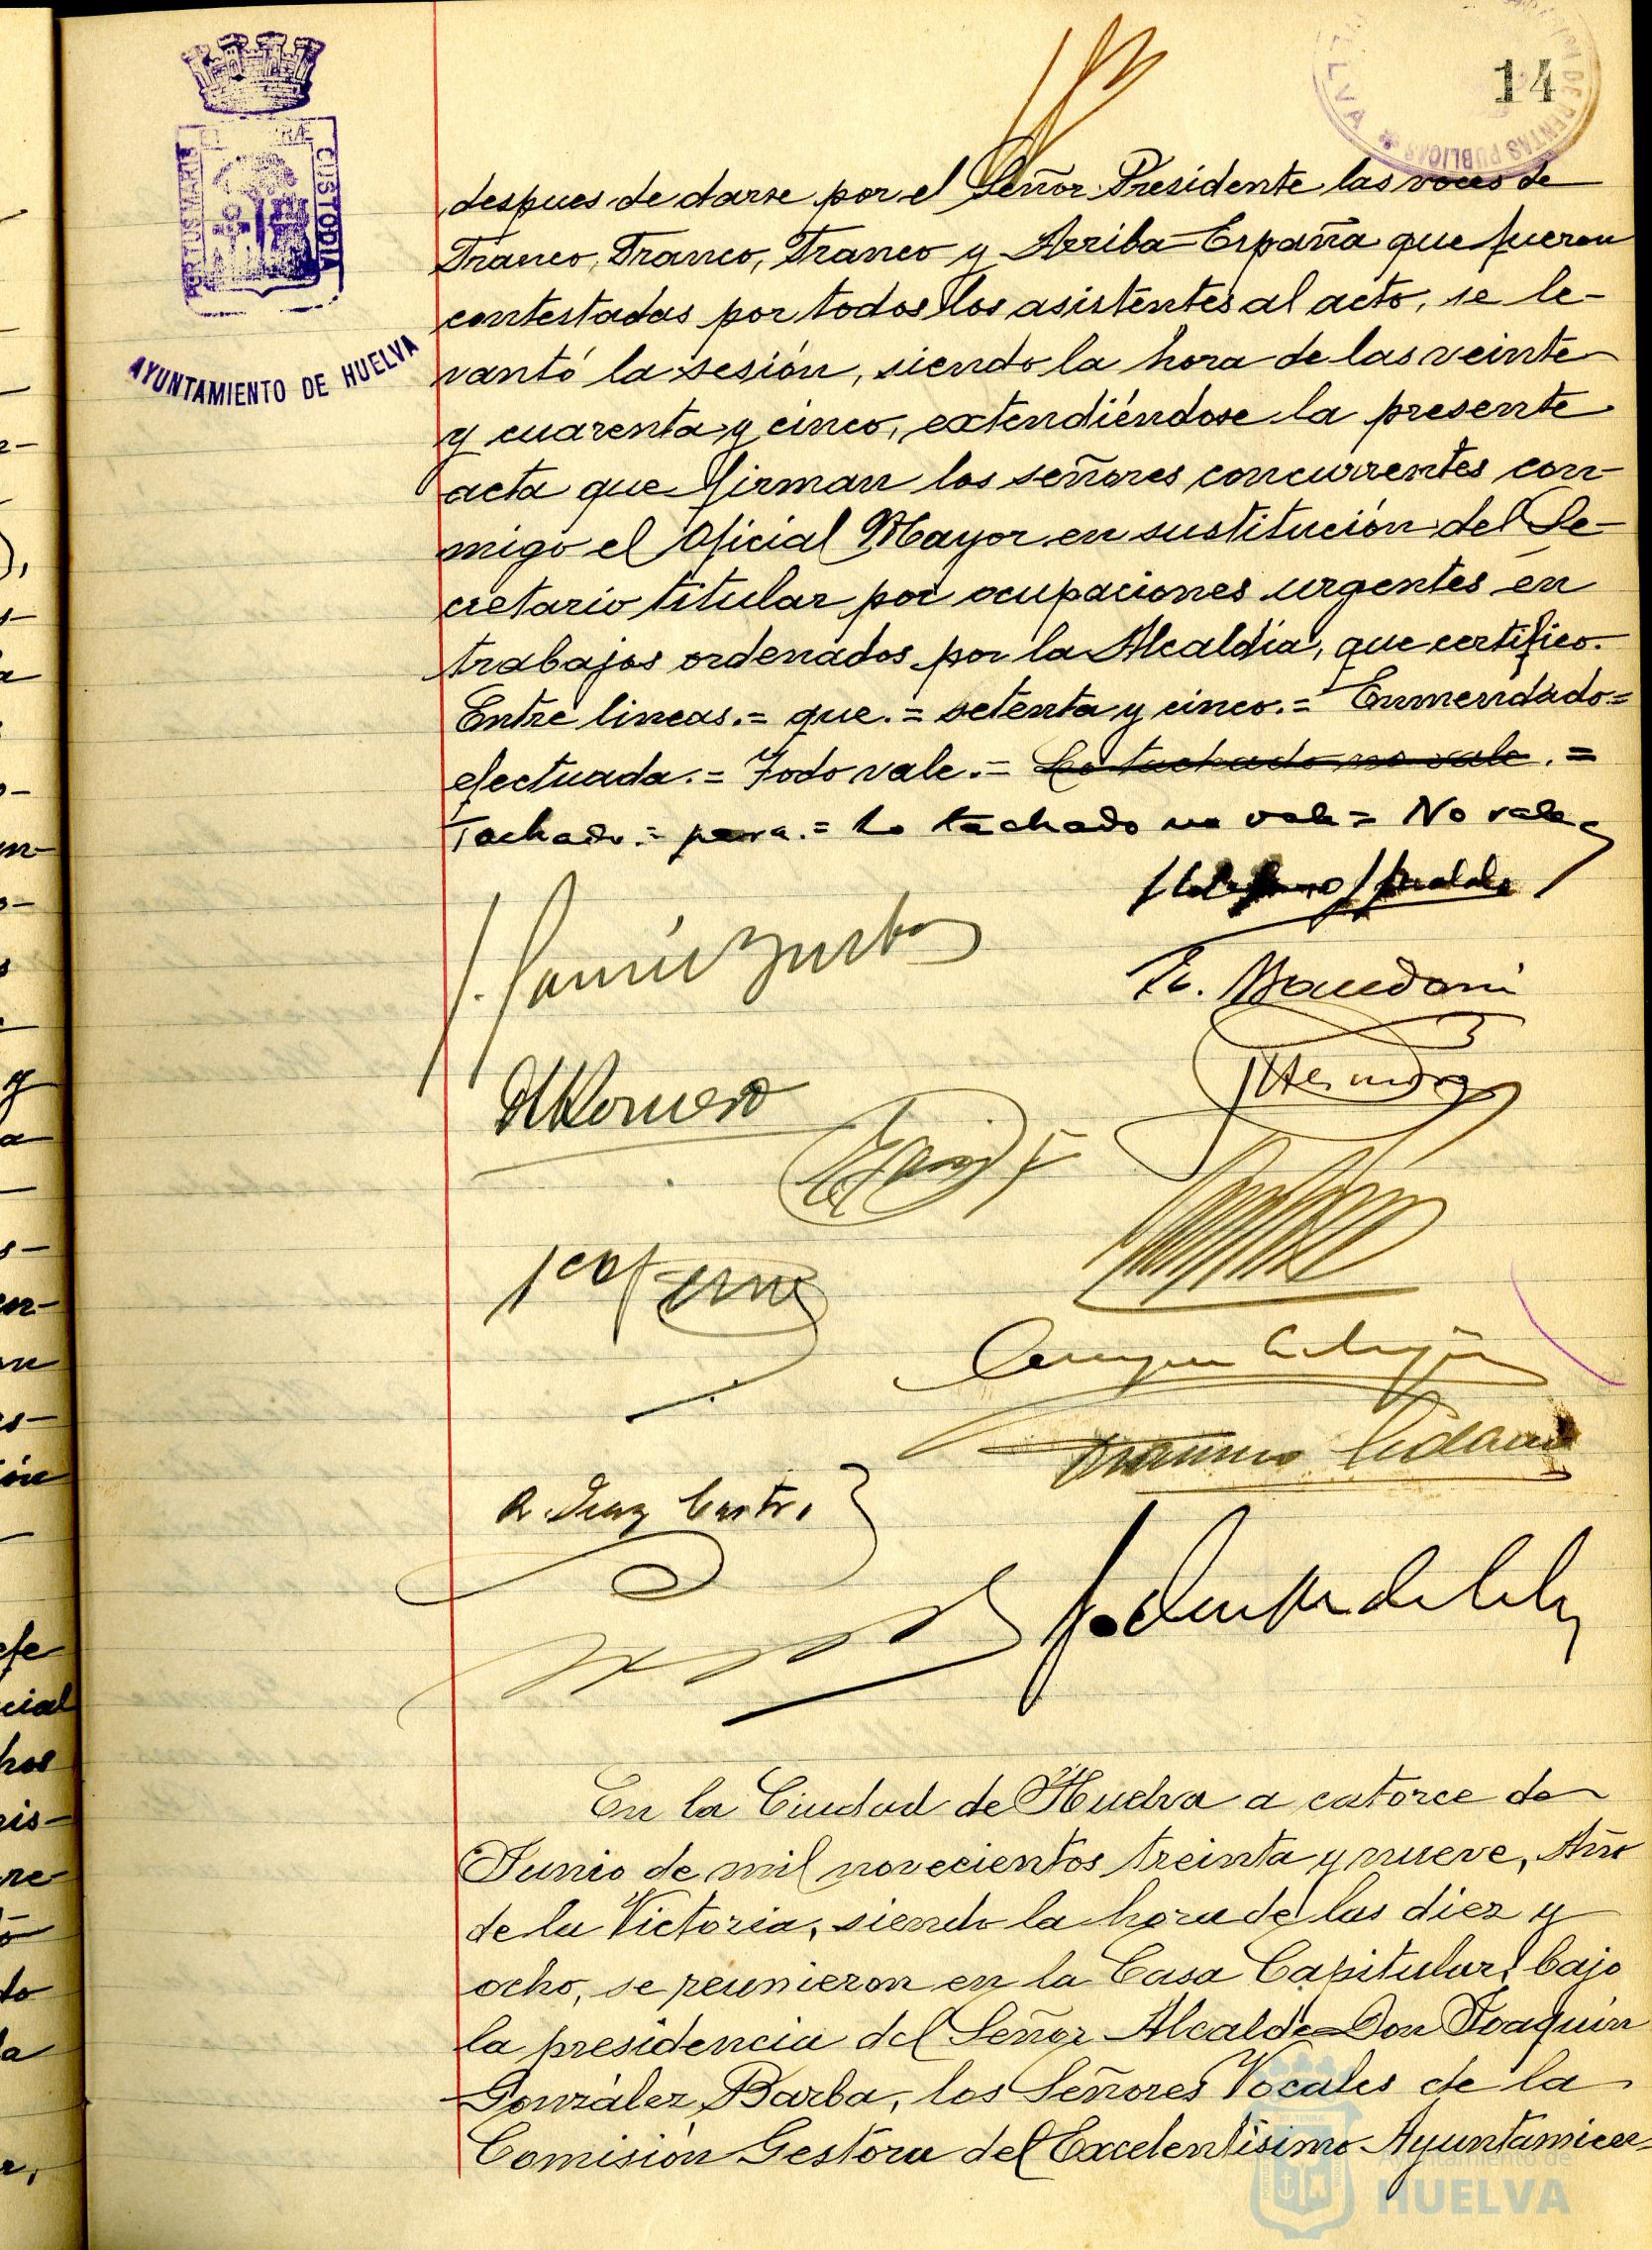 14
PORTUS MARIS
CUSTODIA
AYUNTAMIENTO DE HUELVA
despues de darse por el Señor Presidente las voces de
Franco, Franco, Franco y Arriba España que fueron
contestadas por todos los asistentes al acto, se le-
vantó la sesión, siendo la hora de las veinte
y cuarenta y cinco, extendiéndose la presente
acta que firman los señores concurrentes con-
migo el Oficial Mayor en sustitución del Se-
cretario titular por ocupaciones urgentes en
trabajos ordenados por la Alcaldía, que certifico.
Entre lineas.= que.= setenta y cinco.= Enmendado=
efectuada.= Todo vale.= Lo tachado no vale.=
Tachado.= para.= Lo tachado no vale= No vale
HRomero
R. Diaz
En la Ciudad de Huelva a catorce de
Junio de mil novecientos treinta y nueve, Año
de la Victoria, siendo la hora de las diez y
ocho, se reunieron en la Casa Capitular, bajo
la presidencia del Señor Alcalde Don Joaquín
González Barba, los Señores Vocales de la
Comisión Gestora del Excelentísimo Ayuntamien-
Ayuntamiento de
HUELVA